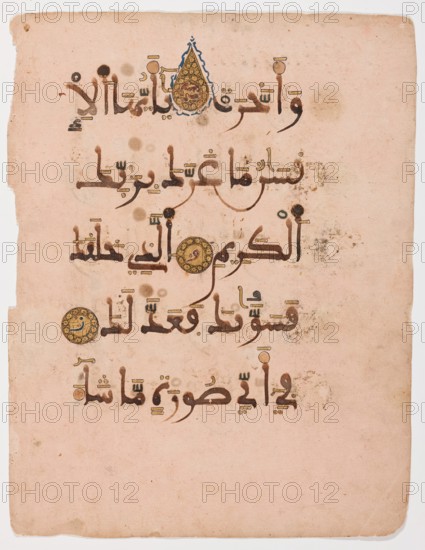 وَأَخَّرَتْ يَٰأَيُّهَا الْإِ
نسَٰنُ مَا غَرَّكَ بِرَبِّكَ
الْكَرِيمِ و الَّذِي خَلَقَكَ
فَسَوَّىٰكَ فَعَدَّلَكَ ز
فِي أَيِّ صُورَةٍ مَّا شَا
PHOTO 12